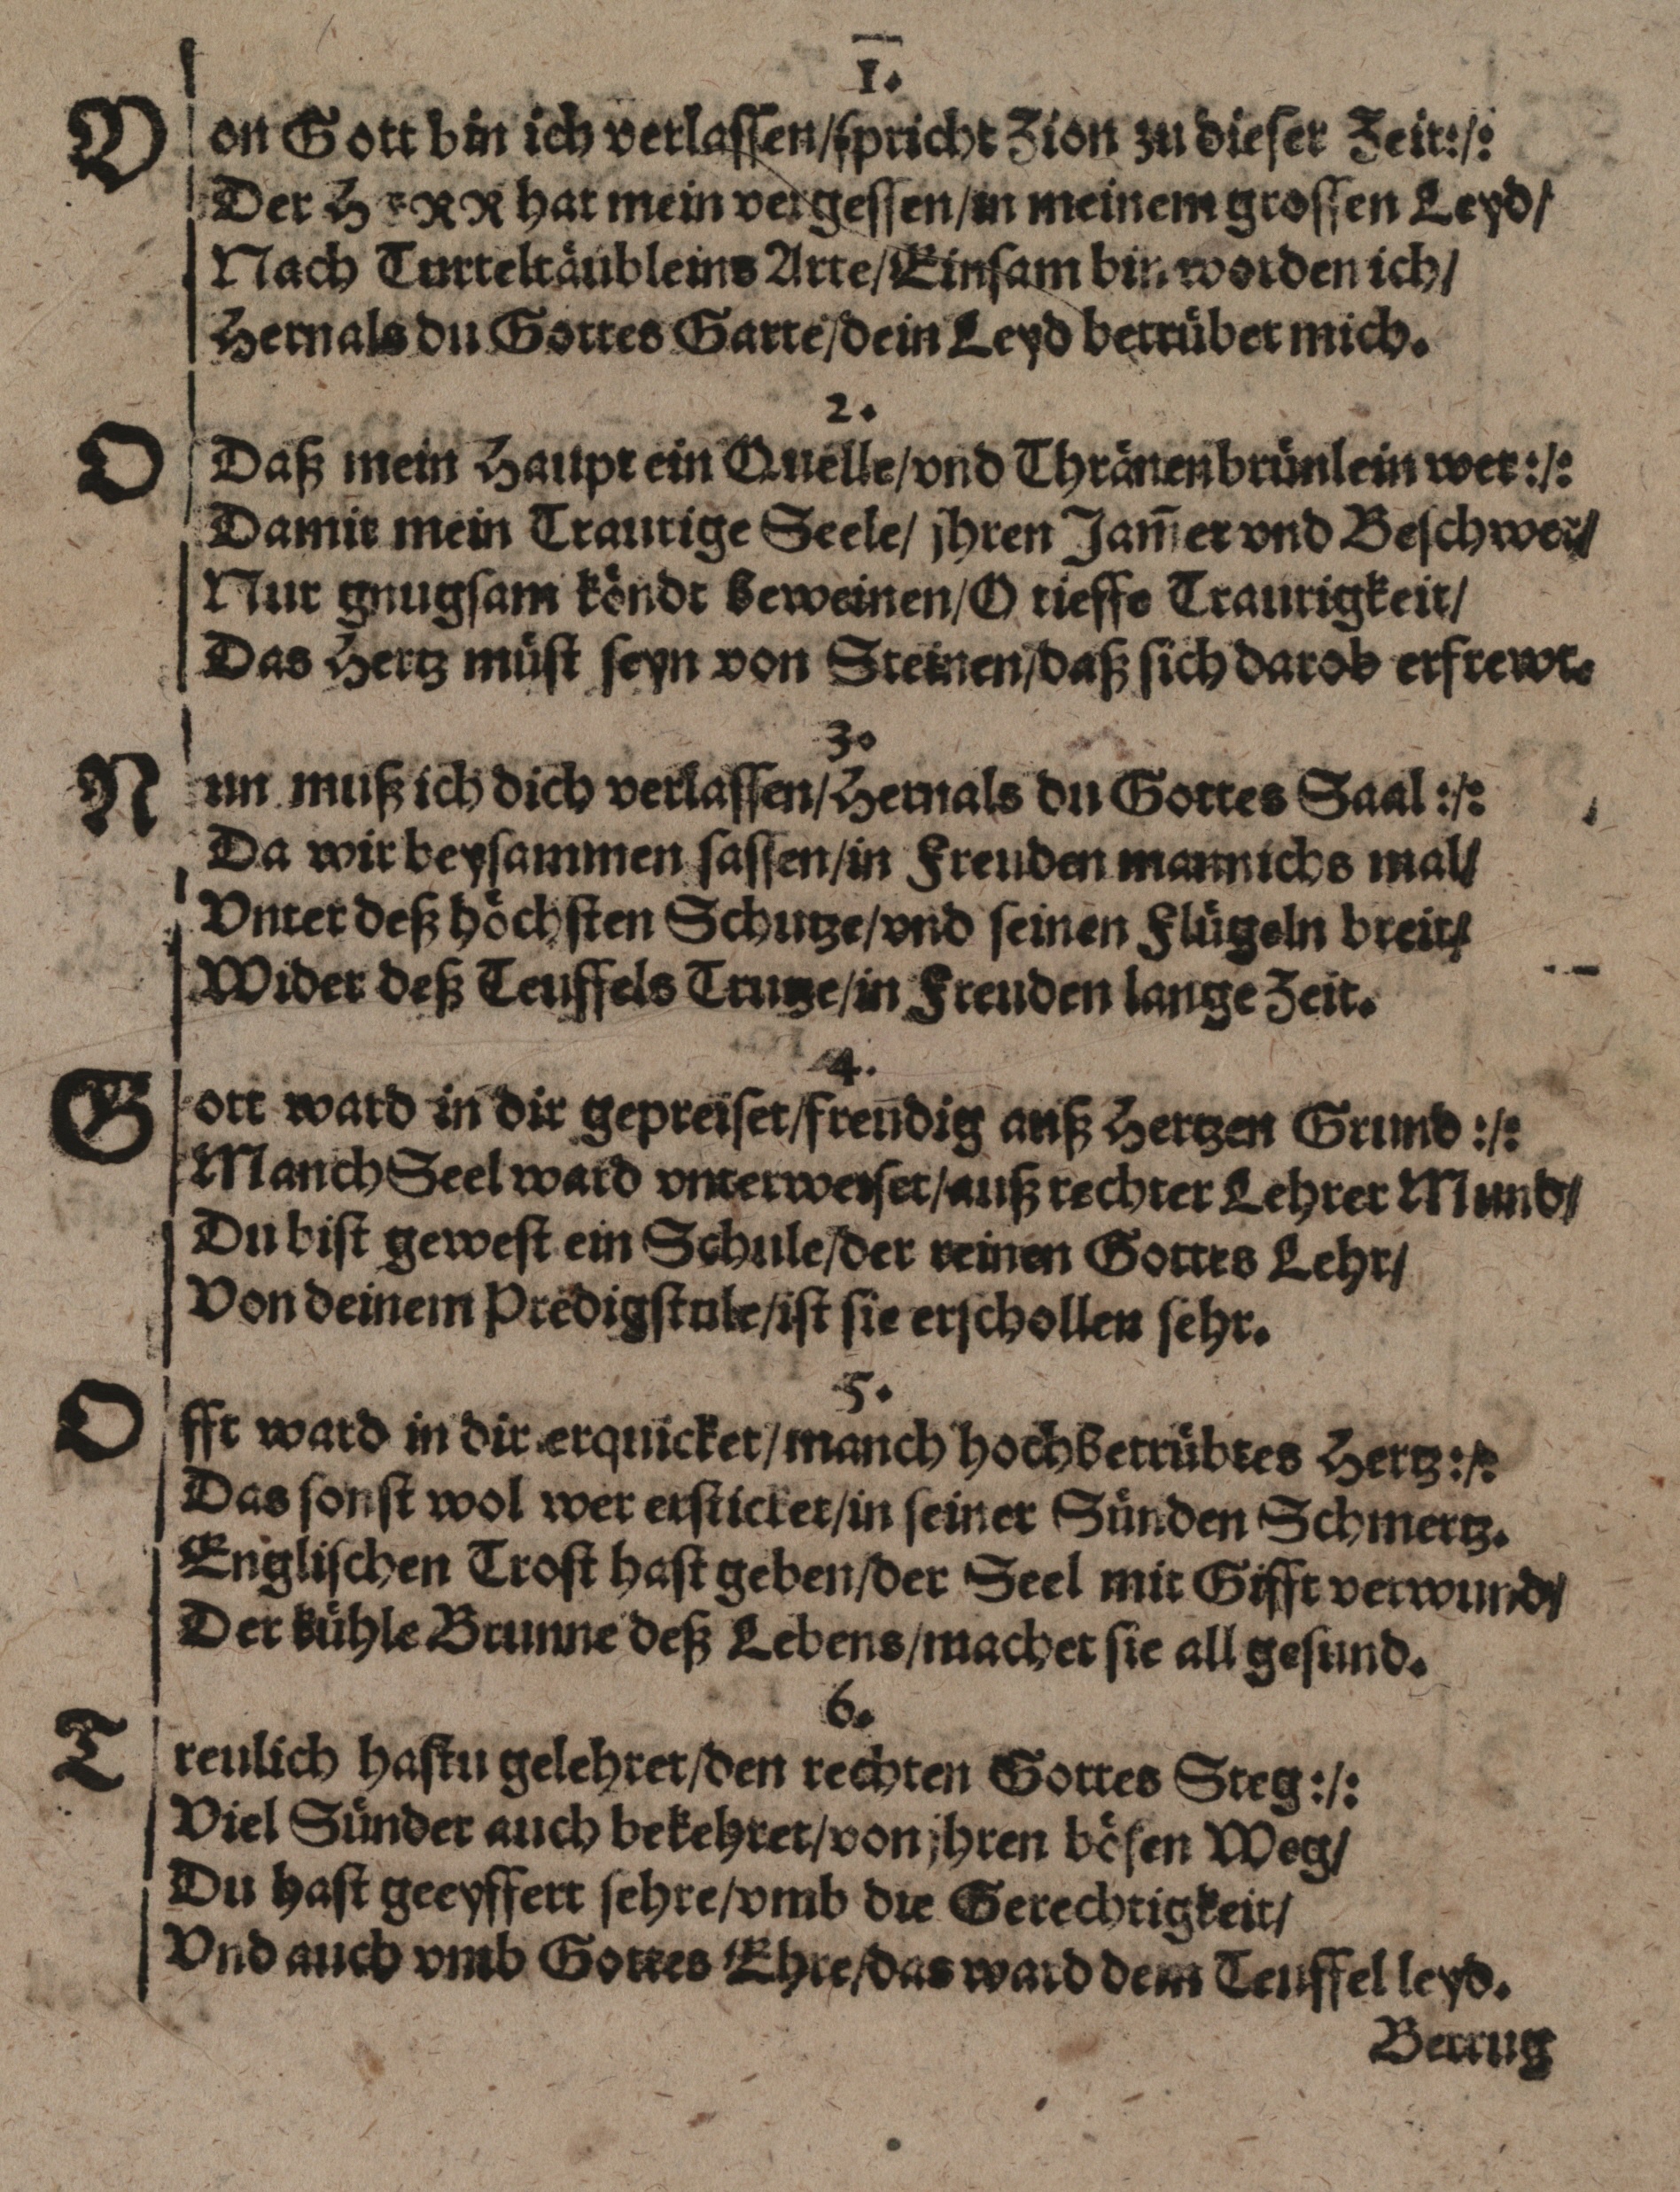 1.
Von Gott bin ich verlassen/spricht Zion zu dieser Zeit:/:
Der HERR hat mein vergessen/in meinem grossen Leyd/
Nach Turteltäubleins Arte/Einsam bin worden ich/
Hernals du Gottes Garte/dein Leyd betrübet mich.
2.
O Daß mein Haupt ein Quelle/vnd Thränenbrünlein wer:/:
Damit mein Traurige Seele/ jhren Jam̃er vnd Beschwer/
Nur gnugsam köndt beweinen/O tieffe Traurigkeit/
Das Hertz müst seyn von Steinen/daß sich darob erfrewt.
3.
Nun muß ich dich verlassen/Hernals du Gottes Saal :/:
Da wir beysammen sassen/in Freuden mannichs mal/
Vnter deß höchsten Schutze/vnd seinen Flügeln breit/
Wider deß Teuffels Trutze/in Freuden lange Zeit.
4.
Gott ward in dir gepreiset/freudig auß Hertzen Grund :/:
Manch Seel ward vnterweiset/auß rechter Lehrer Mund/
Du bist gewest ein Schule/der reinen Gottes Lehr/
Von deinem Predigstule/ist sie erschollen sehr.
5.
Offt ward in dir erquicket/manch hochbetrübtes Hertz:/:
Das sonst wol wer ersticket/in seiner Sünden Schmertz.
Englischen Trost hast geben/der Seel mit Gifft verwund/
Der kühle Brunne deß Lebens/machet sie all gesund.
6.
Treulich hastu gelehret/den rechten Gottes Steg:/:
Viel Sünder auch bekehret/von jhren bösen Weg/
Du hast geeyffert sehre/vmb die Gerechtigkeit/
Vnd auch vmb Gottes Ehre/das ward dem Teuffel leyd.
Betrug